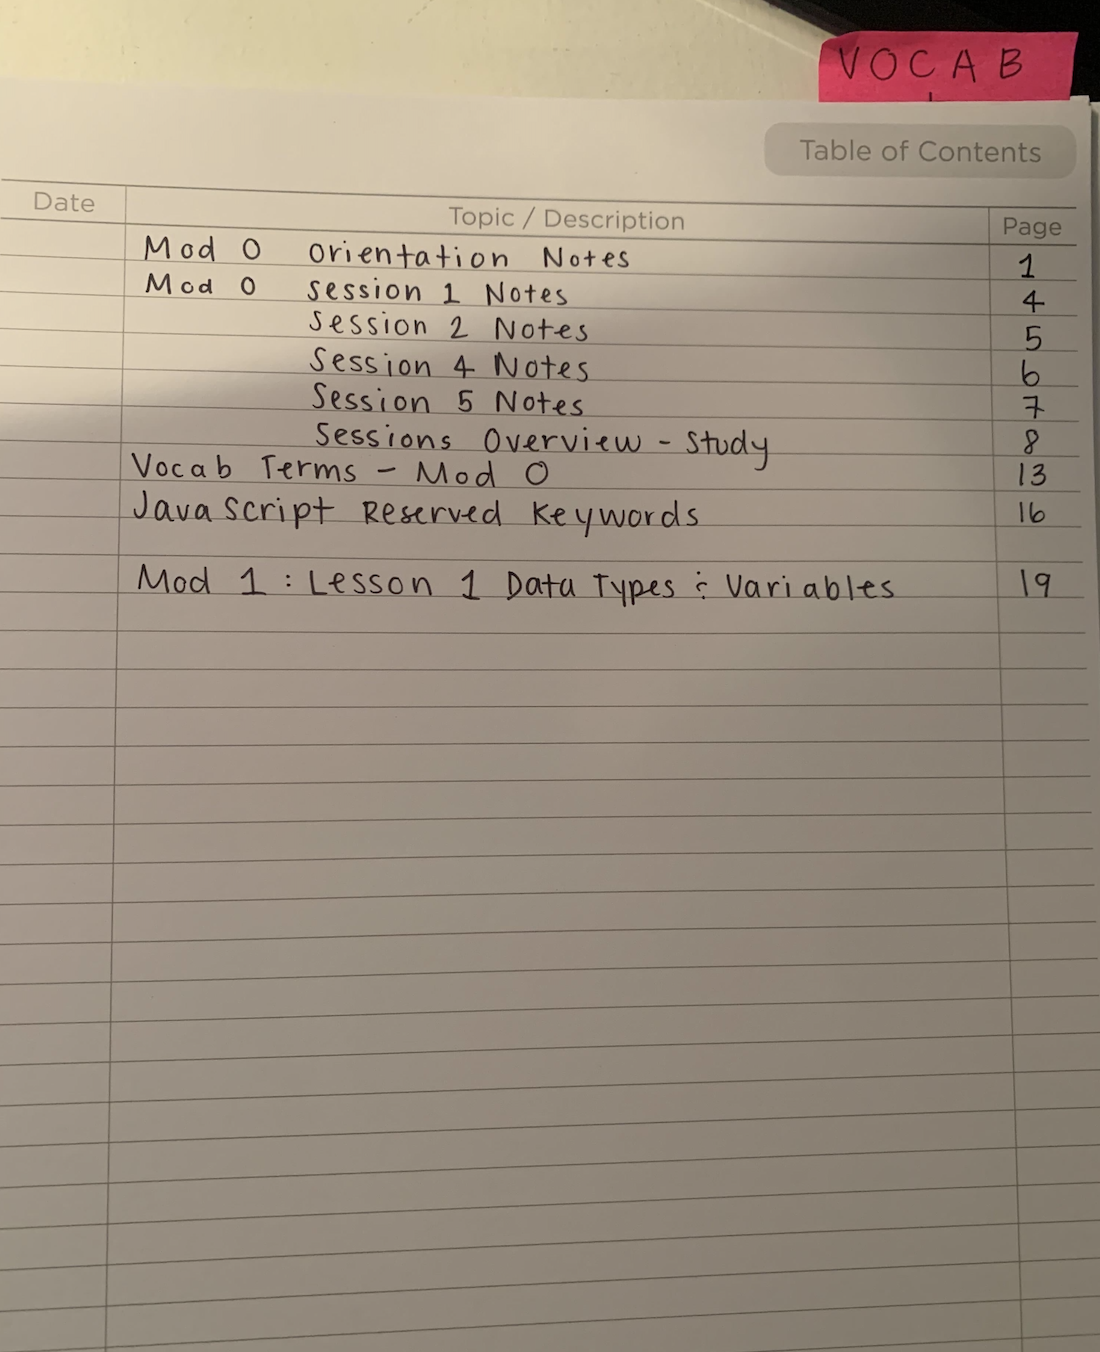 VOCAB
Table of Contents
Date Topic / Description Page
Mod 0 Orientation Notes 1
Mod 0 Session 1 Notes 4
Session 2 Notes 5
Session 4 Notes 6
Session 5 Notes 7
Sessions Overview - Study 8
Vocab Terms - Mod 0 13
JavaScript Reserved Keywords 16
Mod 1 : Lesson 1 Data Types & Variables 19